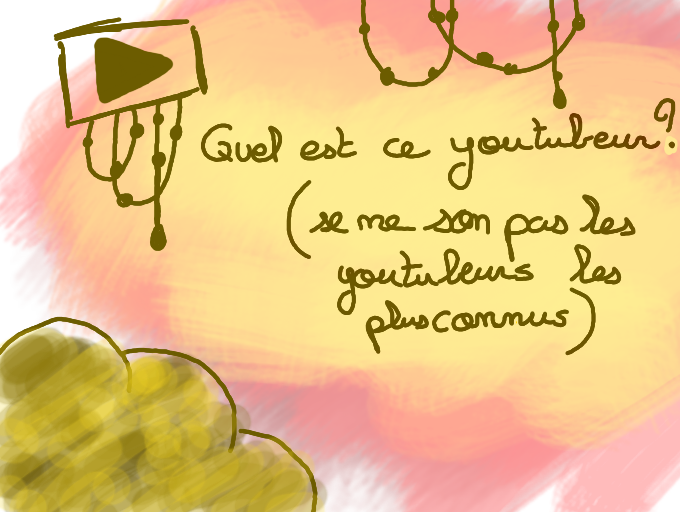 Quel est ce youtubeur?
(se me son pas les
youtubeurs les
plus connus)